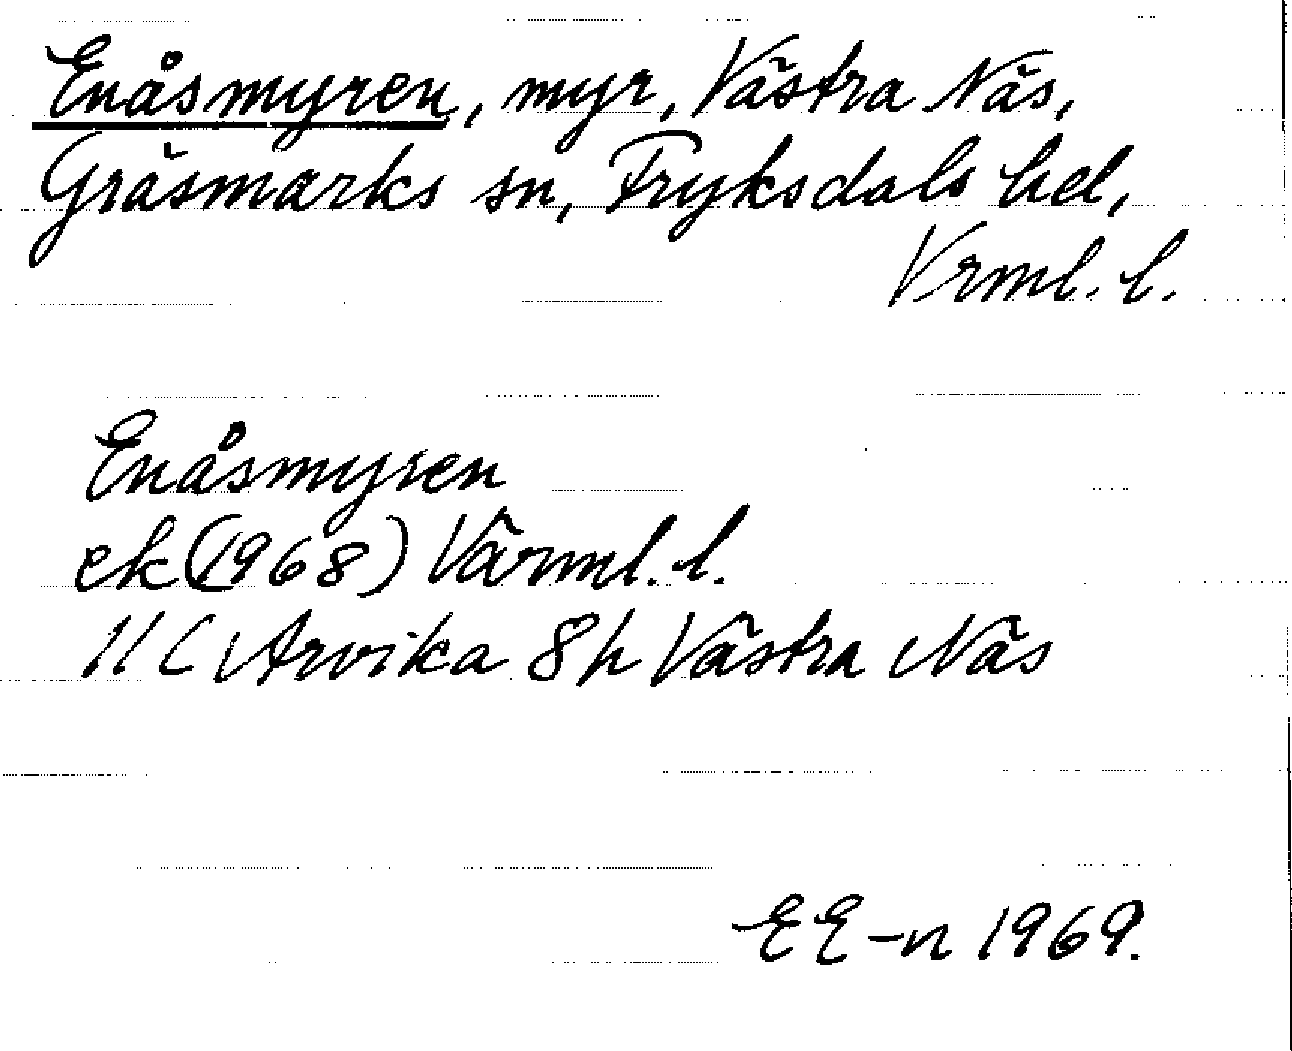 Enåsmyren, myr, Västra Näs,
Gräsmarks sn, Fryksdals hd,
Vrml. l.
Enåsmyren
ek (1968) Värml. l.
11 C Arvika 8h Västra Näs
EE-n 1969.